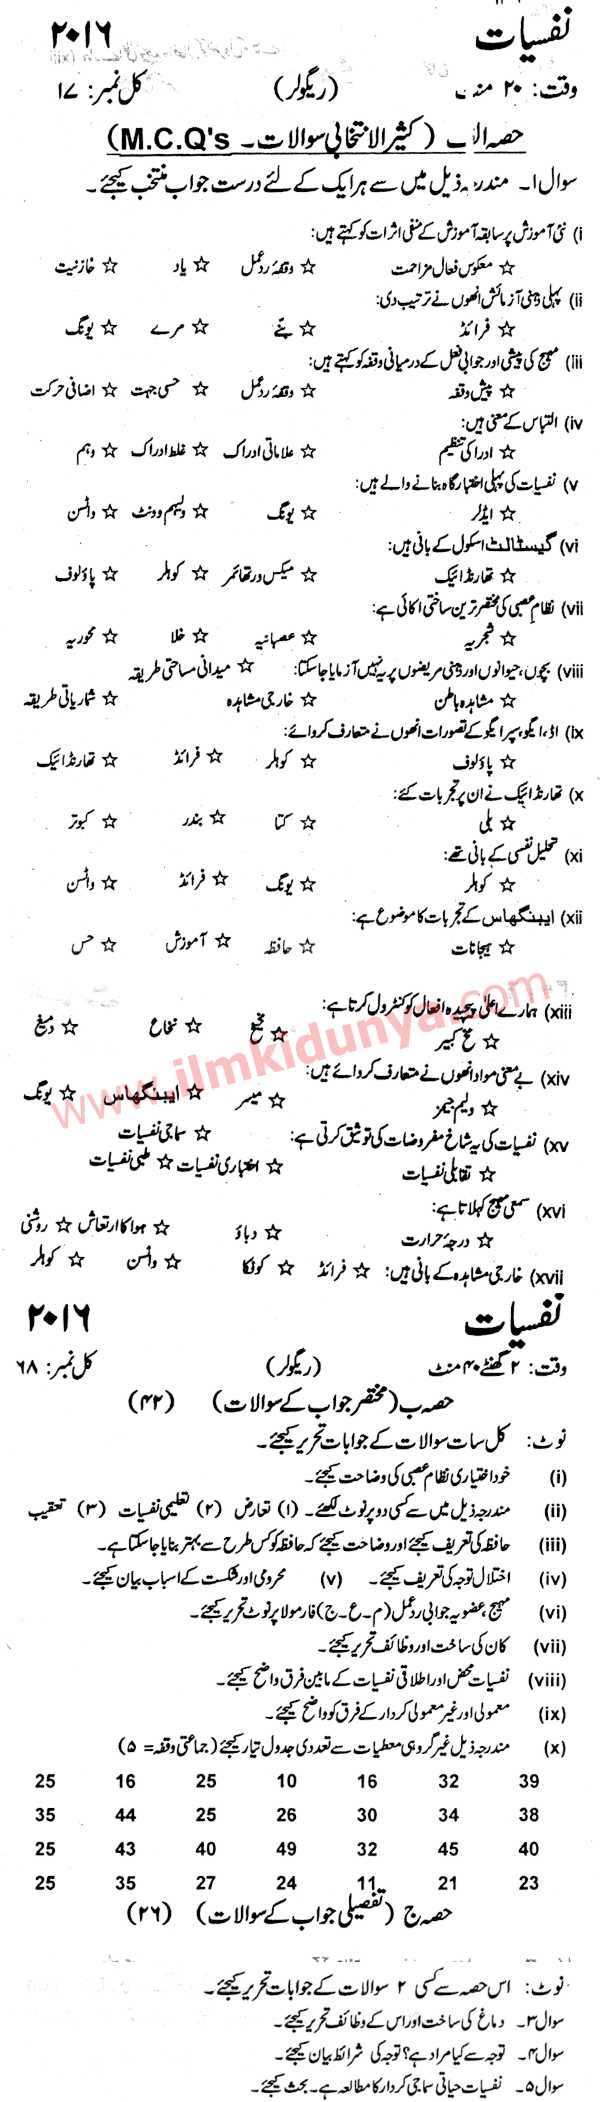 نفسیات ۲۰۱۶
وقت: ۲۰ منٹ (ریگولر) کل نمبر: ۱۷
حصہ الف (کثیر الانتخابی سوالات۔ M.C.Q's)
سوال ۱۔ مندرجہ ذیل میں سے ہر ایک کے لئے درست جواب منتخب کیجئے۔
(i نئی آموزش پر سابقہ آموزش کے منفی اثرات کو کہتے ہیں:
☆ معکوس فعال مزاحمت ☆ وقفۂ ردعمل ☆ یاد ☆ خازنیت
(ii پہلی ذہنی آزمائش انھوں نے ترتیب دی:
☆ فرائڈ ☆ بنے ☆ مرے ☆ یونگ
(iii مہیج کی پیشی اور جوابی فعل کے درمیانی وقفہ کو کہتے ہیں:
☆ پیش وقفہ ☆ وقفۂ ردعمل ☆ حسی جہت ☆ اضافی حرکت
(iv التباس کے معنی ہیں:
☆ ادراکی تنظیم ☆ علاماتی ادراک ☆ غلط ادراک ☆ وہم
(v نفسیات کی پہلی اختبار گاہ بنانے والے ہیں:
☆ ایڈلر ☆ یونگ ☆ ولیہم وونٹ ☆ واٹسن
(vi گیسٹالٹ اسکول کے بانی ہیں:
☆ تھارنڈائیک ☆ میکس ورتھائمر ☆ کوہلر ☆ پاؤلوف
(vii نظام عصبی کی مختصر ترین ساختی اکائی ہے:
☆ شجریہ ☆ عصبانیہ ☆ خلا ☆ محوریہ
(viii بچوں، حیوانوں اور ذہنی مریضوں پر یہ نہیں آزمایا جاسکتا: ☆ میدانی مساحتی طریقہ
☆ مشاہدہ باطن ☆ خارجی مشاہدہ ☆ شماریاتی طریقہ
(ix اڈ، ایگو، سپر ایگو کے تصورات انھوں نے متعارف کروائے:
☆ پاؤلوف ☆ کوہلر ☆ فرائڈ ☆ تھارنڈائیک
(x تھارنڈائیک نے ان پر تجربات کئے:
☆ بلی ☆ کتا ☆ بندر ☆ کبوتر
(xi تحلیل نفسی کے بانی تھے:
☆ کوہلر ☆ یونگ ☆ فرائڈ ☆ واٹسن
(xii ایبنگھاس کے تجربات کا موضوع ہے:
☆ ہیجانات ☆ حافظہ ☆ آموزش ☆ حس
(xiii ہمارے اعلیٰ پیچیدہ افعال کو کنٹرول کرتا ہے:
☆ مخ کبیر ☆ مخیخ ☆ نخاع ☆ دمیغ
www.ilmkidunya.com
(xiv بے معنی مواد انھوں نے متعارف کروائے ہیں:
☆ ولیم جیمز ☆ میسر ☆ ایبنگھاس ☆ یونگ
(xv نفسیات کی یہ شاخ مفروضات کی توثیق کرتی ہے: ☆ سماجی نفسیات
☆ تقابلی نفسیات ☆ اختباری نفسیات ☆ طبی نفسیات
(xvi سمعی مہیج کہلاتا ہے:
☆ درجۂ حرارت ☆ دباؤ ☆ ہوا کا ارتعاش ☆ روشنی
(xvii خارجی مشاہدہ کے بانی ہیں: ☆ فرائڈ ☆ کوفکا ☆ واٹسن ☆ کوہلر
نفسیات ۲۰۱۶
وقت: ۲ گھنٹے ۴۰ منٹ (ریگولر) کل نمبر: ۶۸
حصہ ب (مختصر جواب کے سوالات) (۴۲)
نوٹ: کل سات سوالات کے جوابات تحریر کیجئے۔
(i) خود اختیاری نظام عصبی کی وضاحت کیجئے۔
(ii) مندرجہ ذیل میں سے کسی دو پر نوٹ لکھئے۔ (۱) تعارض (۲) تعلیمی نفسیات (۳) تعقیب
(iii) حافظہ کی تعریف کیجئے اور وضاحت کیجئے کہ حافظہ کو کس طرح سے بہتر بنایا جاسکتا ہے۔
(iv) اختلال توجہ کی تعریف کیجئے۔ (v) محرومی اور شکست کے اسباب بیان کیجئے۔
(vi) مہیج، عضویہ جوابی ردعمل (م-ع-ج) فارمولا پر نوٹ تحریر کیجئے۔
(vii) کان کی ساخت اور وظائف تحریر کیجئے۔
(viii) نفسیات محض اور اطلاقی نفسیات کے مابین فرق واضح کیجئے۔
(ix) معمولی اور غیر معمولی کردار کے فرق کو واضح کیجئے۔
(x) مندرجہ ذیل غیر گروہی معطیات سے تعددی جدول تیار کیجئے (جماعتی وقفہ = ۵)
25 16 25 10 16 32 39
35 44 25 26 30 34 38
25 43 40 49 32 45 40
25 35 27 24 11 21 23
حصہ ج (تفصیلی جواب کے سوالات) (۲۶)
نوٹ: اس حصہ سے کسی ۲ سوالات کے جوابات تحریر کیجئے۔
سوال ۳۔ دماغ کی ساخت اور اس کے وظائف تحریر کیجئے۔
سوال ۴۔ توجہ سے کیا مراد ہے؟ توجہ کی شرائط بیان کیجئے۔
سوال ۵۔ نفسیات حیاتی سماجی کردار کا مطالعہ ہے۔ بحث کیجئے۔